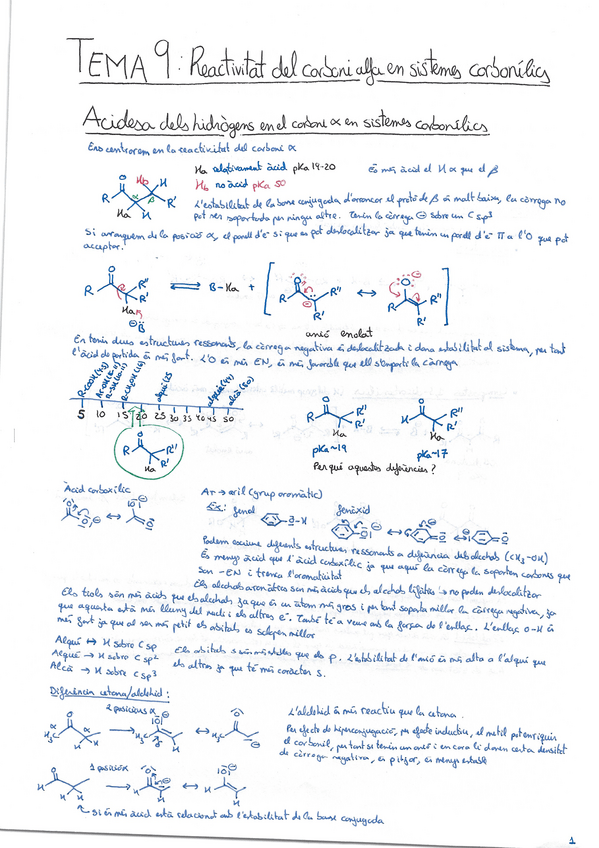 TEMA 9: Reactivitat del carboni alfa en sistemes carbonílics
Acidesa dels hidrògens en el carboni α en sistemes carbonílics
Ens centrarem en la reactivitat del carboni α
Ha relativament àcid pKa 14-20
És més àcid el H α que el β
Hb no àcid pKa 50
L'estabilitat de la base conjugada d'arrancar el protó de β és molt baixa, la càrrega no
pot ser suportada per ningú altre. Tenim la càrrega ⊖ sobre un C sp³
Si arranquem de la posició α, el parell d'e⁻ si que es pot deslocalitzar ja que tenim un parell d'e⁻ π a l'O que pot
acceptar.
B-Ha +
anió enolat
En tenir dues estructures ressonants, la càrrega negativa és deslocalitzada i dona estabilitat al sistema, per tant
l'àcid de partida és més fort. L'O és més EN, és més favorable que ell s'emporti la càrrega
5 10 15 20 25 30 35 40 45 50
pKa~19
pKa~17
Per què aquestes diferències?
Àcid carboxílic
Ar → aril (grup aromàtic)
Ex: fenol
fenòxid
Podem escriure diferents estructures ressonants a diferència dels alcohols (CH₃-OH)
És menys àcid que l'àcid carboxílic ja que aquí la càrrega la suporten carbonis que
són -EN i trenca l'aromaticitat
Els alcohols aromàtics són més àcids que els alcohols lifàtics → no poden deslocalitzar
Els tiols són més àcids que els alcohols ja que és un àtom més gros i per tant suporta millor la càrrega negativa, ja
que aquesta està més lluny del nucli i els altres e⁻. També té a veure amb la força de l'enllaç. L'enllaç O-H és
més fort ja que al ser més petit els orbitals es solapen millor
Alquí ↔ H sobre C sp
Alquè → H sobre C sp²
Alcà → H sobre C sp³
Els orbitals s són més estables que els p. L'estabilitat de l'anió és més alta a l'alquí que
els altres ja que té més caràcter s.
Diferència cetona/aldehid:
2 posicions α
L'aldehid és més reactiu que la cetona.
Per efecte de hiperconjugació, per efecte inductiu, el metil pot enriquir
el carbonil, per tant si tenim un anió i encara li donem certa densitat
de càrrega negativa, és pitjor, és menys estable
1 posició α
Si és més àcid està relacionat amb l'estabilitat de la base conjugada
1